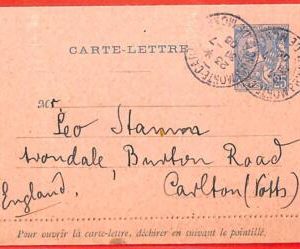 CARTE-LETTRE
Mr
Leo Stamma
Avondale, Burton Road
Carlton (Notts)
England.
Pour ouvrir la carte-lettre, déchirer en suivant le pointillé.
25